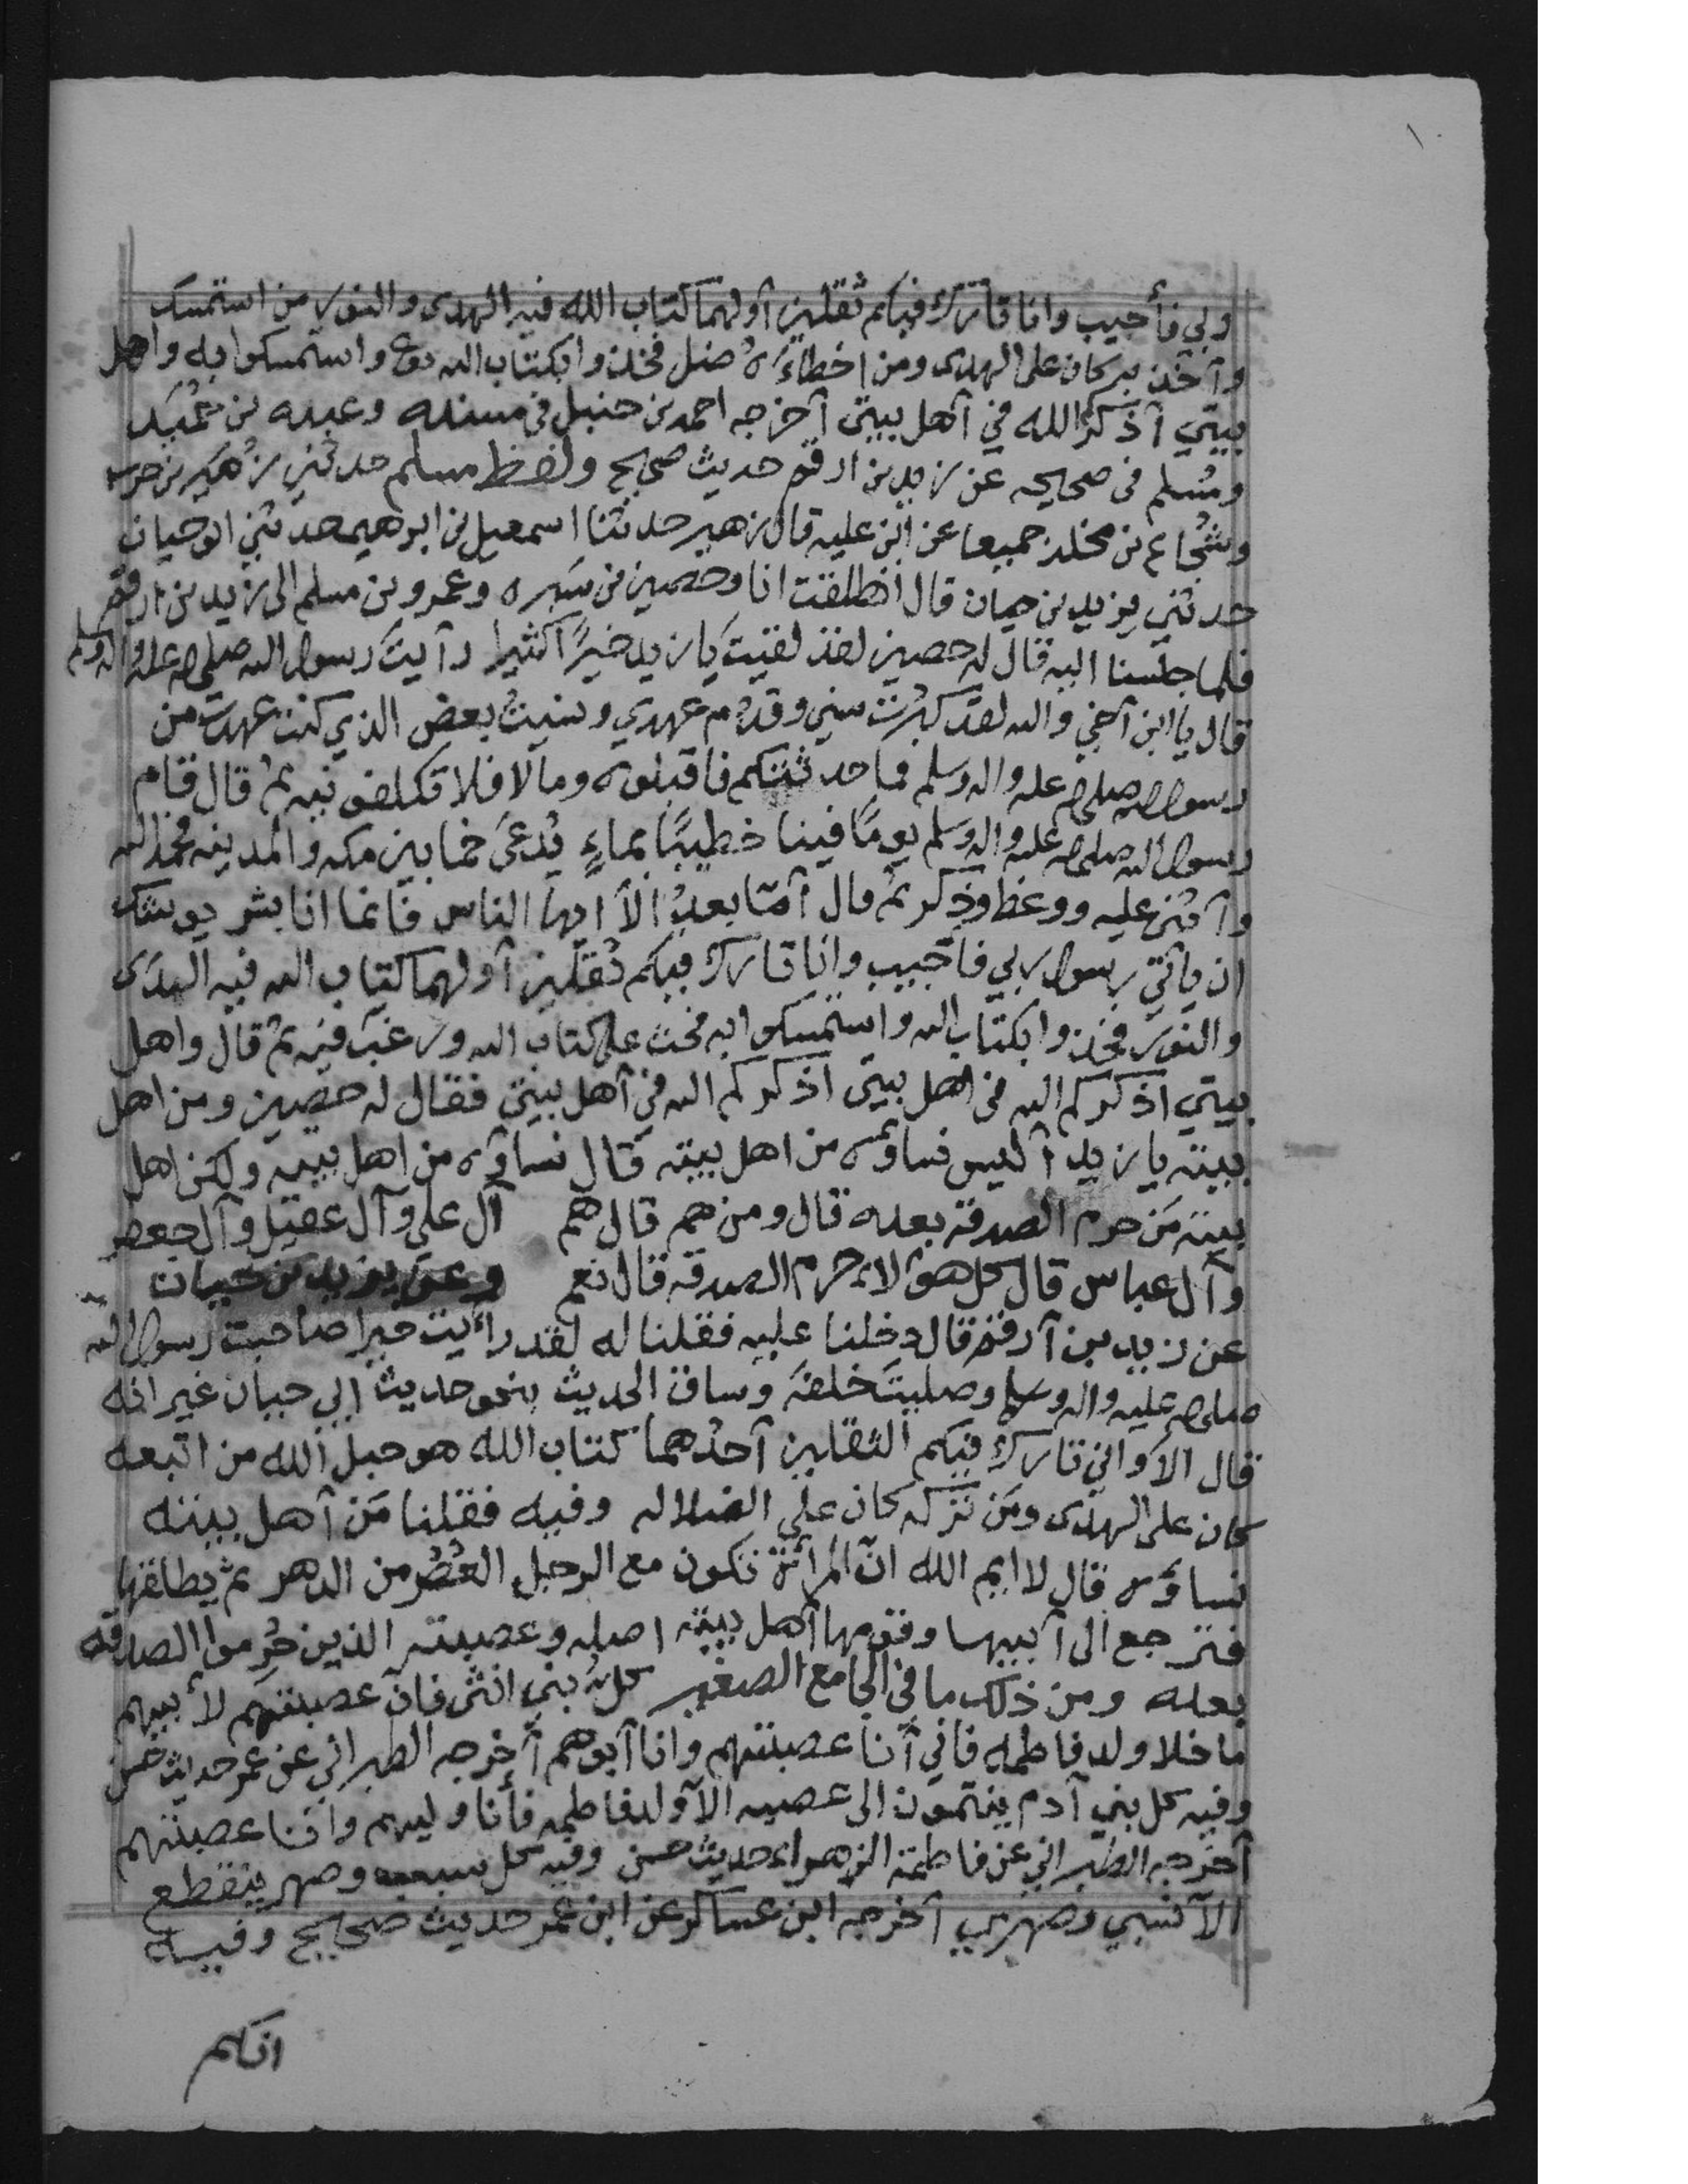 ربي فأجيب وانا تارك فيكم ثقلين أولهما كتاب الله فيه الهدى والنور من استمسك
وآخذ به كان على الهدى ومن اخطأه ضل فخذوا بكتاب الله واستمسكوا به واهل
بيتي أذكركم الله في أهل بيتي أخرجه احمد بن حنبل في مسنده وعبد بن حميد
ومسلم في صحيحه عن زيد بن ارقم حديث صحيح ولفظ مسلم حدثني زهير بن حرب
وشجاع بن مخلد جميعا عن ابن عليه قال زهير حدثنا اسمعيل بن ابرهيم حدثني ابو حيان
حدثني يزيد بن حيان قال انطلقت انا وحصين بن سبره وعمرو بن مسلم الى زيد بن ارقم
فلما جلسنا اليه قال له حصين لقد لقيت يا زيد خيرًا كثيرا رأيت رسول الله صلى الله عليه واله وسلم
قال يا ابن أخي والله لقد كبرت سني وقدم عهدي ونسيت بعض الذي كنت عهدت من
رسول الله صلى الله عليه واله وسلم فما حدثتكم فاقبلوه ومالا فلا تكلفونيه ثم قال قام
رسول الله صلى الله عليه واله وسلم يومًا فينا خطيبًا بماءٍ يدعى خما بين مكه والمدينه فحمد الله
وأثنى عليه ووعظ وذكر ثم قال أمّا بعد ألا ايها الناس فانما انا بشر يوشك
ان يأتي رسول ربي فأجيب وانا تارك فيكم ثقلين أولهما كتاب الله فيه الهدى
والنور فخذوا بكتاب الله واستمسكوا به فحث على كتاب الله ورغب فيه ثم قال واهل
بيتي اذكركم الله في اهل بيتي اذكركم الله في أهل بيتي فقال له حصين ومن اهل
بيته يا زيد أليس نساؤه من اهل بيته قال نساؤه من اهل بيته ولكن اهل
بيته من حرم الصدقة بعده قال ومن هم قال هم آل علي وآل عقيل وآل جعفر
وآل عباس قال كل هؤلاء حرم الصدقه قال نعم وعن يزيد بن حيان
عن زيد بن أرقم قال دخلنا عليه فقلنا له لقد رأيت خيرا صاحبت رسول الله
صلى الله عليه واله وسلم وصليت خلفه وساق الحديث بنحو حديث ابي حيان غير انه
قال الأ واني تارك فيكم الثقلين أحدهما كتاب الله هو حبل الله من اتبعه
كان على الهدى ومن تركه كان على الضلاله وفيه فقلنا من أهل بيته
نساؤه قال لا ايم الله انّ المرأة تكون مع الرجل العصر من الدهر ثم يطلقها
فترجع الى أبيها وقومها أهل بيته اصله وعصبته الذين حُرموا الصدقه
بعده ومن ذلك ما في الجامع الصغير كل بني انثى فان عصبتهم لأبيهم
ما خلا ولد فاطمه فاني أنا عصبتهم وانا أبوهم أخرجه الطبراني عن عمر حديث حسن
وفيه كل بني آدم ينتمون الى عصبه الأ ولد فاطمه فأنا وليهم وانا عصبتهم
أخرجه الطبراني عن فاطمة الزهراء حديث حسن وفيه كل وصهر ينقطع
الأ نسبي وصهري أخرجه ابن عساكر عن ابن عمر حديث صحيح وفيه
انكم